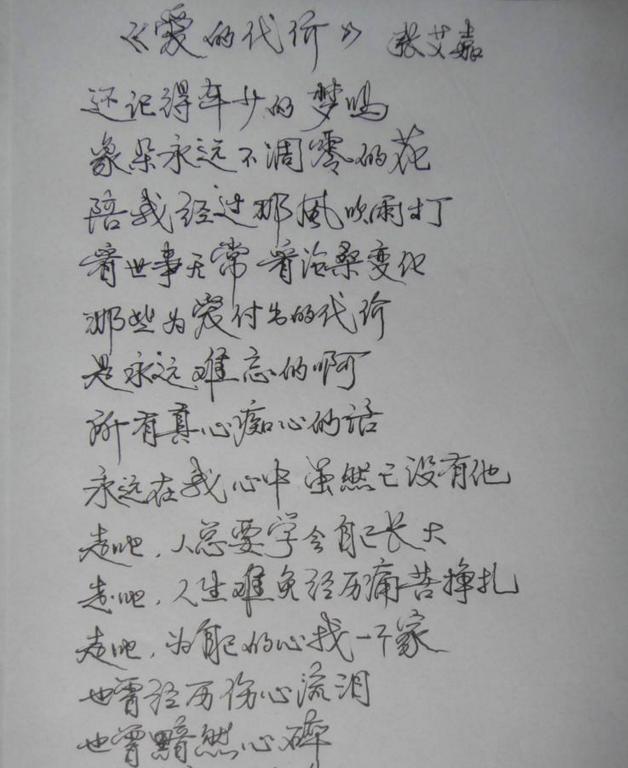 《爱的代价》 张艾嘉
还记得年少的梦吗
象朵永远不凋零的花
陪我经过那风吹雨打
看世事无常 看沧桑变化
那些为爱付出的代价
是永远难忘的啊
所有真心痴心的话
永远在我心中 虽然已没有他
走吧，人总要学会自己长大
走吧，人生难免经历痛苦挣扎
走吧，为自己的心找一个家
也曾经历伤心流泪
也曾黯然心碎